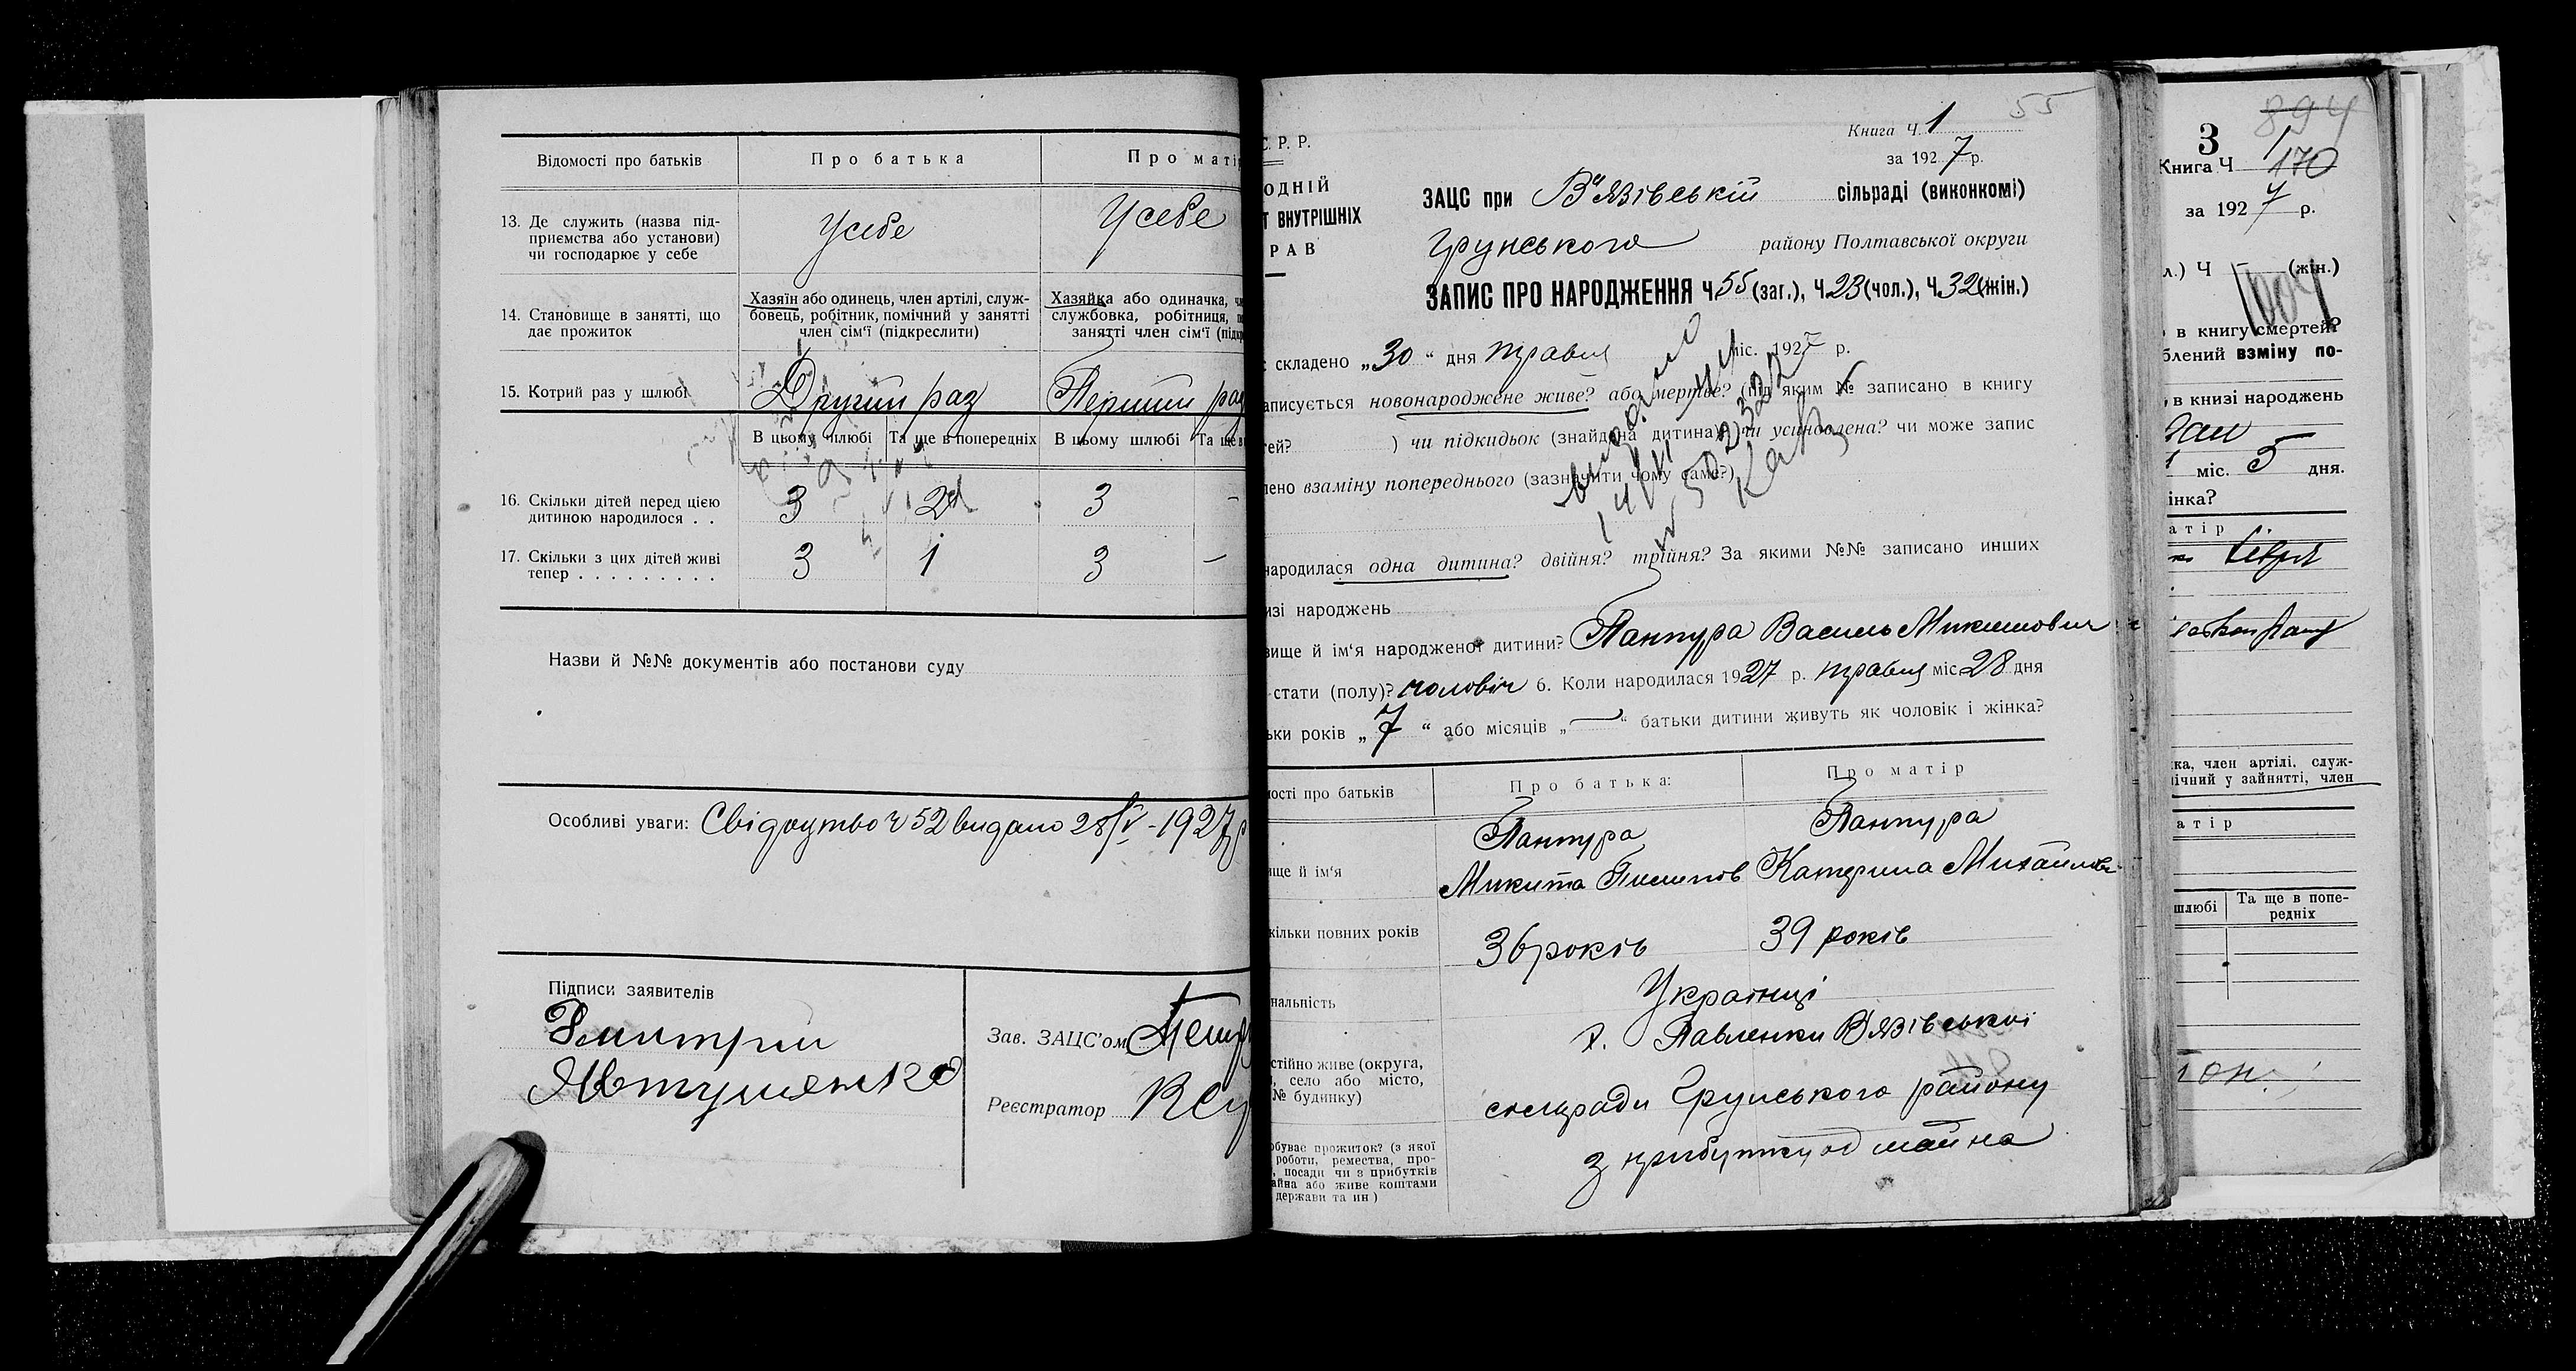 Відомості про батьків
Про батька
Про маті
13. Де служить (назва під-
приємства або установи)
чи господарює у себе
Усебе
Усебе
14. Становище в занятті, що
дає прожиток
Хазяїн або одинець, член артілі, служ-
бовець, робітник, помічний у занятті
член сім'ї (підкреслити)
Хазяйка або одиначка, чл
службовка, робітниця, п
занятті член сім'ї (підкр
15. Котрий раз у шлюбі
Другий раз
Перший раз
В цьому шлюбі
Та ще в попередніх
В цьому шлюбі
Та ще в
16. Скільки дітей перед цією
дитиною народилося . .
3
2
3
-
17. Скільки з цих дітей живі
тепер . . . . . . . . .
3
1
3
-
Назви й №№ документів або постанови суду
Особливі уваги: Свідоцтво ч 52 видано 28/V-1927 р
Підписи заявителів
Дмитрий
Зав. ЗАЦС'ом
Реєстратор
55
С. Р. Р.
Книга Ч. 1
за 1927 р.
ОДНІЙ
Т ВНУТРІШНІХ
РАВ
ЗАЦС при В"язівській сільраді (виконкомі)
Грунського району Полтавської округи
ЗАПИС ПРО НАРОДЖЕННЯ Ч 55 (заг.), Ч. 23 (чол.), Ч. 32 (жін.)
складено „30“ дня травня міс. 1927 р.
аписується новонароджене живе? або мертве? (під яким № записано в книгу
тей? ) чи підкидьок (знайдена дитина)? чи усиновлена? чи може запис
лено взаміну попереднього (зазначити чому саме?)
видано
народилася одна дитина? двійня? трійня? За якими №№ записано инших
изі народжень
вище й ім'я народженої дитини? Пантура Василь Микитович
стати (полу)? чоловіч 6. Коли народилася 1927 р. травня міс 28 дня
ьки років „7“ або місяців „—“ батьки дитини живуть як чоловік і жінка?
мості про батьків
Про батька:
Про матір
ище й ім'я
Пантура
Микита Пилипов
Пантура
Катерина Михайлов
кільки повних років
36 років
39 років
нальність
Українці
стійно живе (округа,
, село або місто,
№ будинку)
х. Павленки В'язівської
сільради Грунського району
обуває прожиток? (з якої
роботи, ремества, про-
, посади чи з прибутків
айна або живе коштами
держави та ин)
з прибутку од майна
894
3
Книга Ч 1
170
за 1927 р.
л.) Ч (жін.)
в книгу смертей?
блений взміну по-
, в книзі народжень
міс. 5 дня.
інка?
атір
ка, член артілі, служ-
ічний у зайнятті, член
атір
шлюбі
Та ще в попе-
редніх